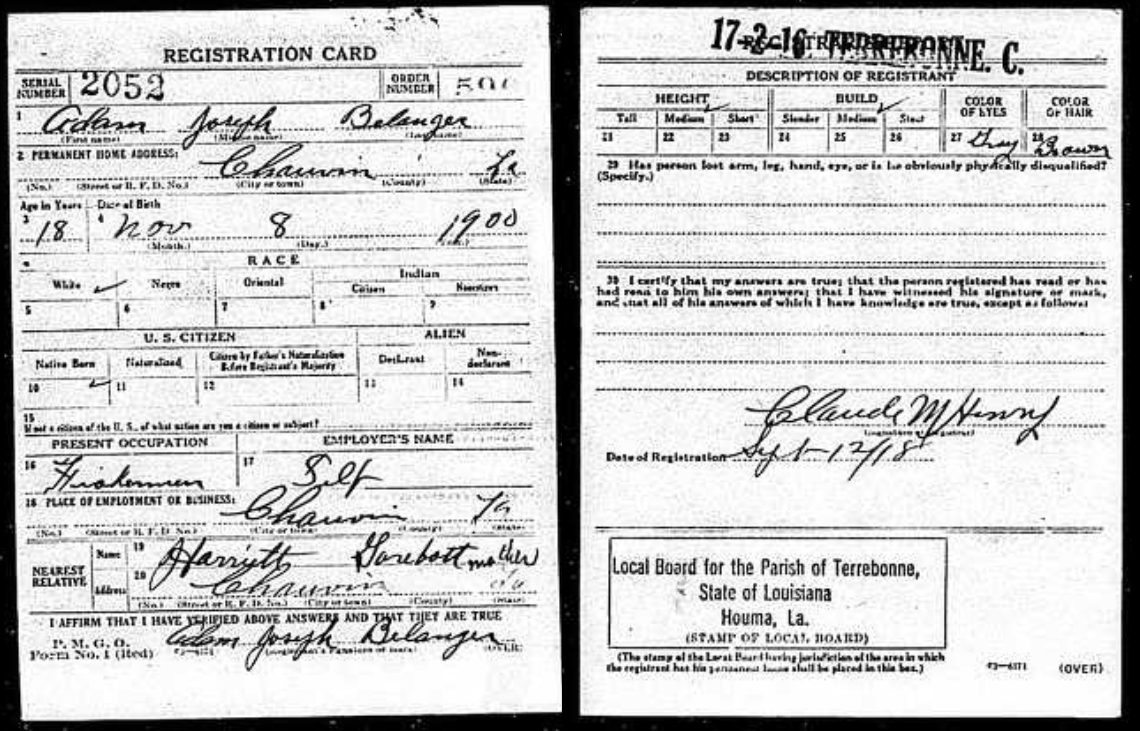 REGISTRATION CARD
SERIAL NUMBER 2052 ORDER NUMBER
1 Adam Joseph Belanger
(First name) (Middle name) (Last name)
2 PERMANENT HOME ADDRESS:
Chauvin La
(No.) (Street or R. F. D. No.) (City or town) (County) (State)
Age in Years Date of Birth
3 18 4 Nov 8 1900
(Month.) (Day.) (Year.)
RACE
White ✓ Negro Oriental Indian
Citizen Noncitizen
5 6 7 8 9
U. S. CITIZEN ALIEN
Native Born Naturalized Citizen by Father's Naturalization Before Registrant's Majority Declarant Non-declarant
10 ✓ 11 12 13 14
15
If not a citizen of the U. S., of what nation are you a citizen or subject?
PRESENT OCCUPATION EMPLOYER'S NAME
16 Fisherman 17 Self
18 PLACE OF EMPLOYMENT OR BUSINESS:
Chauvin La
(No.) (Street or R. F. D. No.) (City or town) (County) (State)
NEAREST RELATIVE Name 19 Harriett mother
Address 20 Chauvin La
(No.) (Street or R. F. D. No.) (City or town) (County) (State)
I AFFIRM THAT I HAVE VERIFIED ABOVE ANSWERS AND THAT THEY ARE TRUE
P. M. G. O.
Form No. 1 (Red) Adam Joseph Belanger
(Registrant's signature or mark) (OVER)
17-2-16 TERREBONNE. C.
REGISTRAR'S REPORT
DESCRIPTION OF REGISTRANT
HEIGHT BUILD COLOR OF EYES COLOR OF HAIR
Tall Medium ✓ Short Slender Medium ✓ Stout
21 22 23 24 25 26 27 Gray 28 Brown
29 Has person lost arm, leg, hand, eye, or is he obviously physically disqualified?
(Specify.)
30 I certify that my answers are true; that the person registered has read or has
had read to him his own answers; that I have witnessed his signature or mark,
and that all of his answers of which I have knowledge are true, except as follows:
Claude M Henry
(Signature of Registrar)
Date of Registration Sept 12/18
Local Board for the Parish of Terrebonne,
State of Louisiana
Houma, La.
(STAMP OF LOCAL BOARD)
(The stamp of the Local Board having jurisdiction of the area in which
the registrant has his permanent home shall be placed in this box.)
03—6171 (OVER)